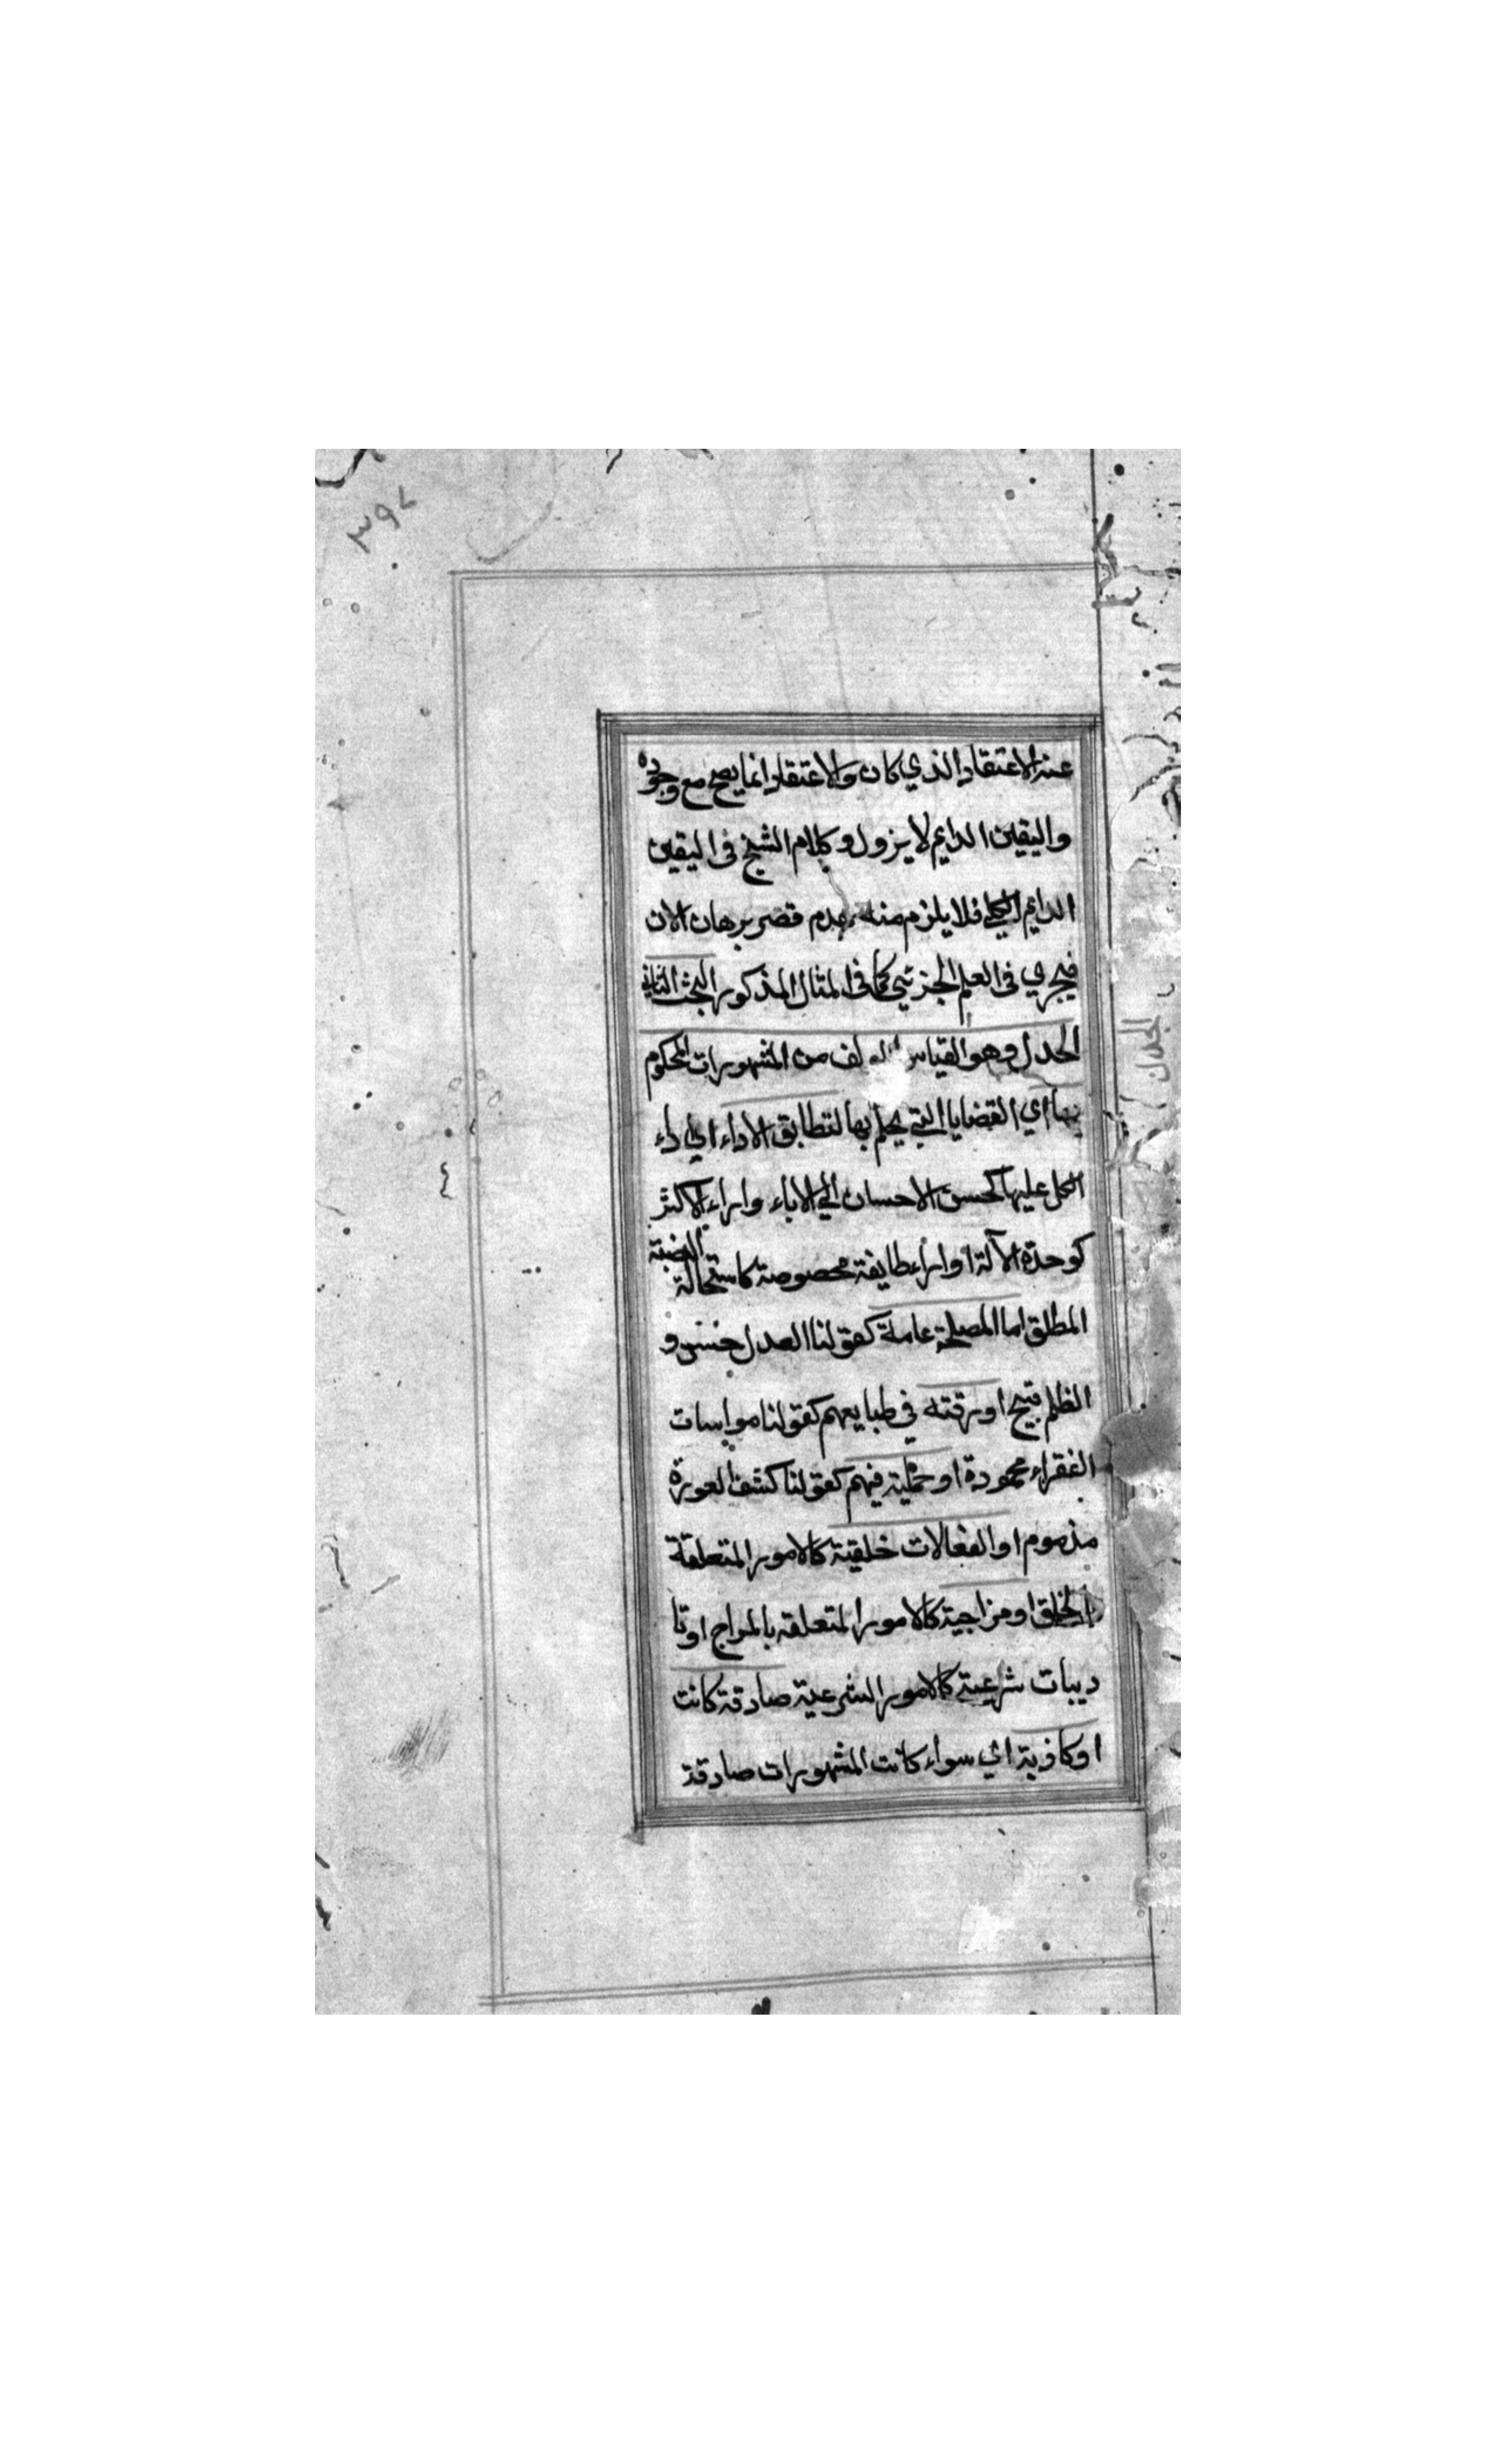 ٣٩٧
عنه الاعتقاد الذي كان والاعتقاد انما يصح مع وجوده
واليقين الدايم لا يزول وكلام الشيخ فى اليقين
الدايم الكلي فلا يلزم منه عدم قصر برهان الان
فيجري فى العلم الجزئي كما فى المثال المذكور البحث الثاني
الجدل وهو القياس المولف من المشهورات المحكوم
بها اي القضايا التي يحكم بها لتطابق الاراء اي اراء
الكل عليها كحسن الاحسان الي الاباء واراء الاكثر
كوحدة الآلة او اراء طايفة مخصوصة كاستحالة
المطلق اما المصلحة عاملة كقولنا العدل حسن و
الظلم قبيح او رقته في طبايعهم كقولنا مواسات
الفقراء محمودة او حملية فيهم كقولنا كشف العورة
مذموم او انفعالات خلقية كالامور المتعلقة
الخلق او مزاجية كالامور المتعلقه بالمزاج او تا
ديبات شرعية كالامور الشرعية صادقة كانت
او كاذبة اي سواء كانت المشهورات صادقة
الجدل
٤